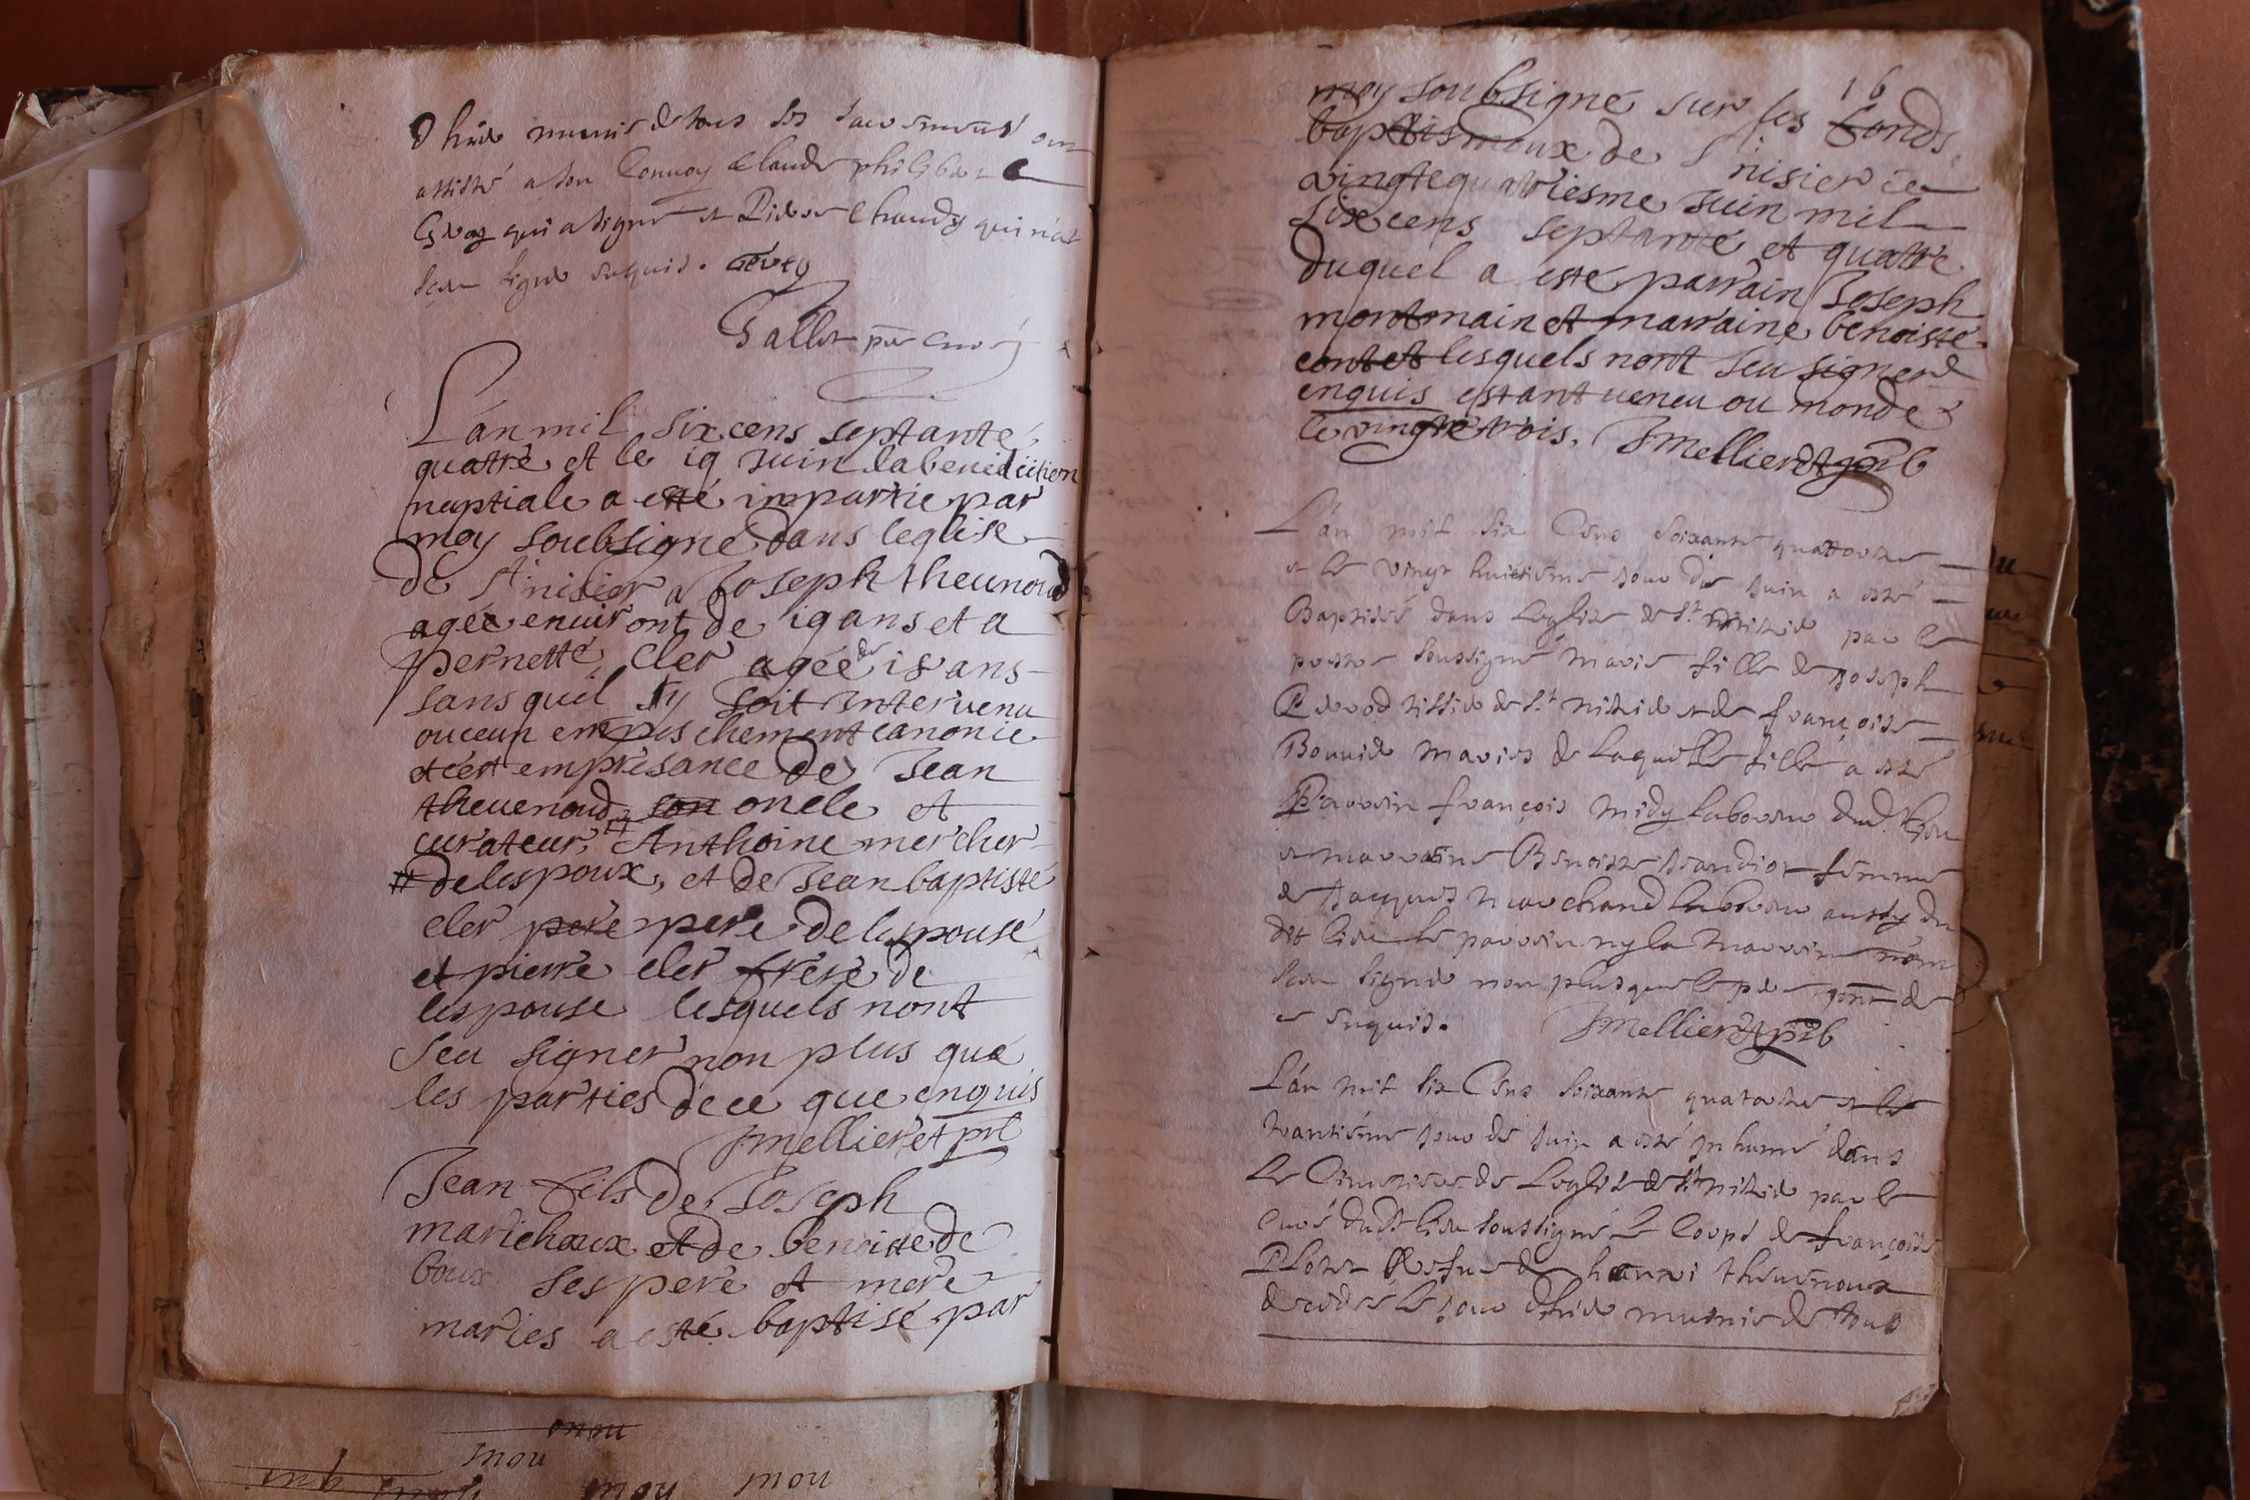 d'hier munis de tous les sacremens ont
assisté a son convoy Claude philibert
Gevey qui a signé et Pierre Chaudy qui n'at
sceu signer enquis. Gevey
Gallet pbr curé
L'an mil six cens septante
quatre et le 19 Juin la benediction
nuptiale a esté impartie par
moy soubsigne dans leglise
de St nisier a Joseph theuenoud
agée enuiront de 19 ans et a
Pernette Cler agée de 18 ans
sans quil ny soit interuenu
ouceun empeschement canonic
et cest emprésance de Jean
theuenoud son oncle et
curateur, Anthoine mercher
# de lespoux, et de Jean baptiste
cler pere pere de lespouse
et pierre cler frere de
lespouse lesquels nont
seu signer non plus que
les parties dece que enquis
Jmellieret pr
Jean fils de Joseph
marichaux et de benoitte de
boux ses pere et mere
maries a esté baptisé par
16
moy soubsigne sur les fonds
baptismaux de St nisier ce
vingtequatriesme Juin mil
six cens septante et quatre
duquel a esté parrain Joseph
montmain et marraine benoiste
contet lesquels nont seu signer
enquis estant ueneu ou monde
le vingtetrois. Jmellieret
L'an mil six Cens soixante quattorze
et le vingt huictieme jour de juin a esté
Baptisée dans l'eglise de St nisier par le
prestre soussigné marie fille de joseph
tissier de St nisier et de françoise
Bouvier maries de laquelle fille a esté
Parrain françois midy laboureur dud. lieu
et marraine Benoiste femme
de jacques marchand laboureur aussy du
dit lieu le parrain ny la marraine n'ont
sceu signer non plus que le pere de
ce enquis. Jmellieret
L'an mil six Cens soixante quatorze et le
trantiéme jour de juin a esté inhumé dans
le Cimetiere de l'eglise de St nisier par le
curé dudt lieu soussigné le corps de françoise
vefue de henri theuenoux
decedée le jour d'hier munie de tous
mou
moy mou